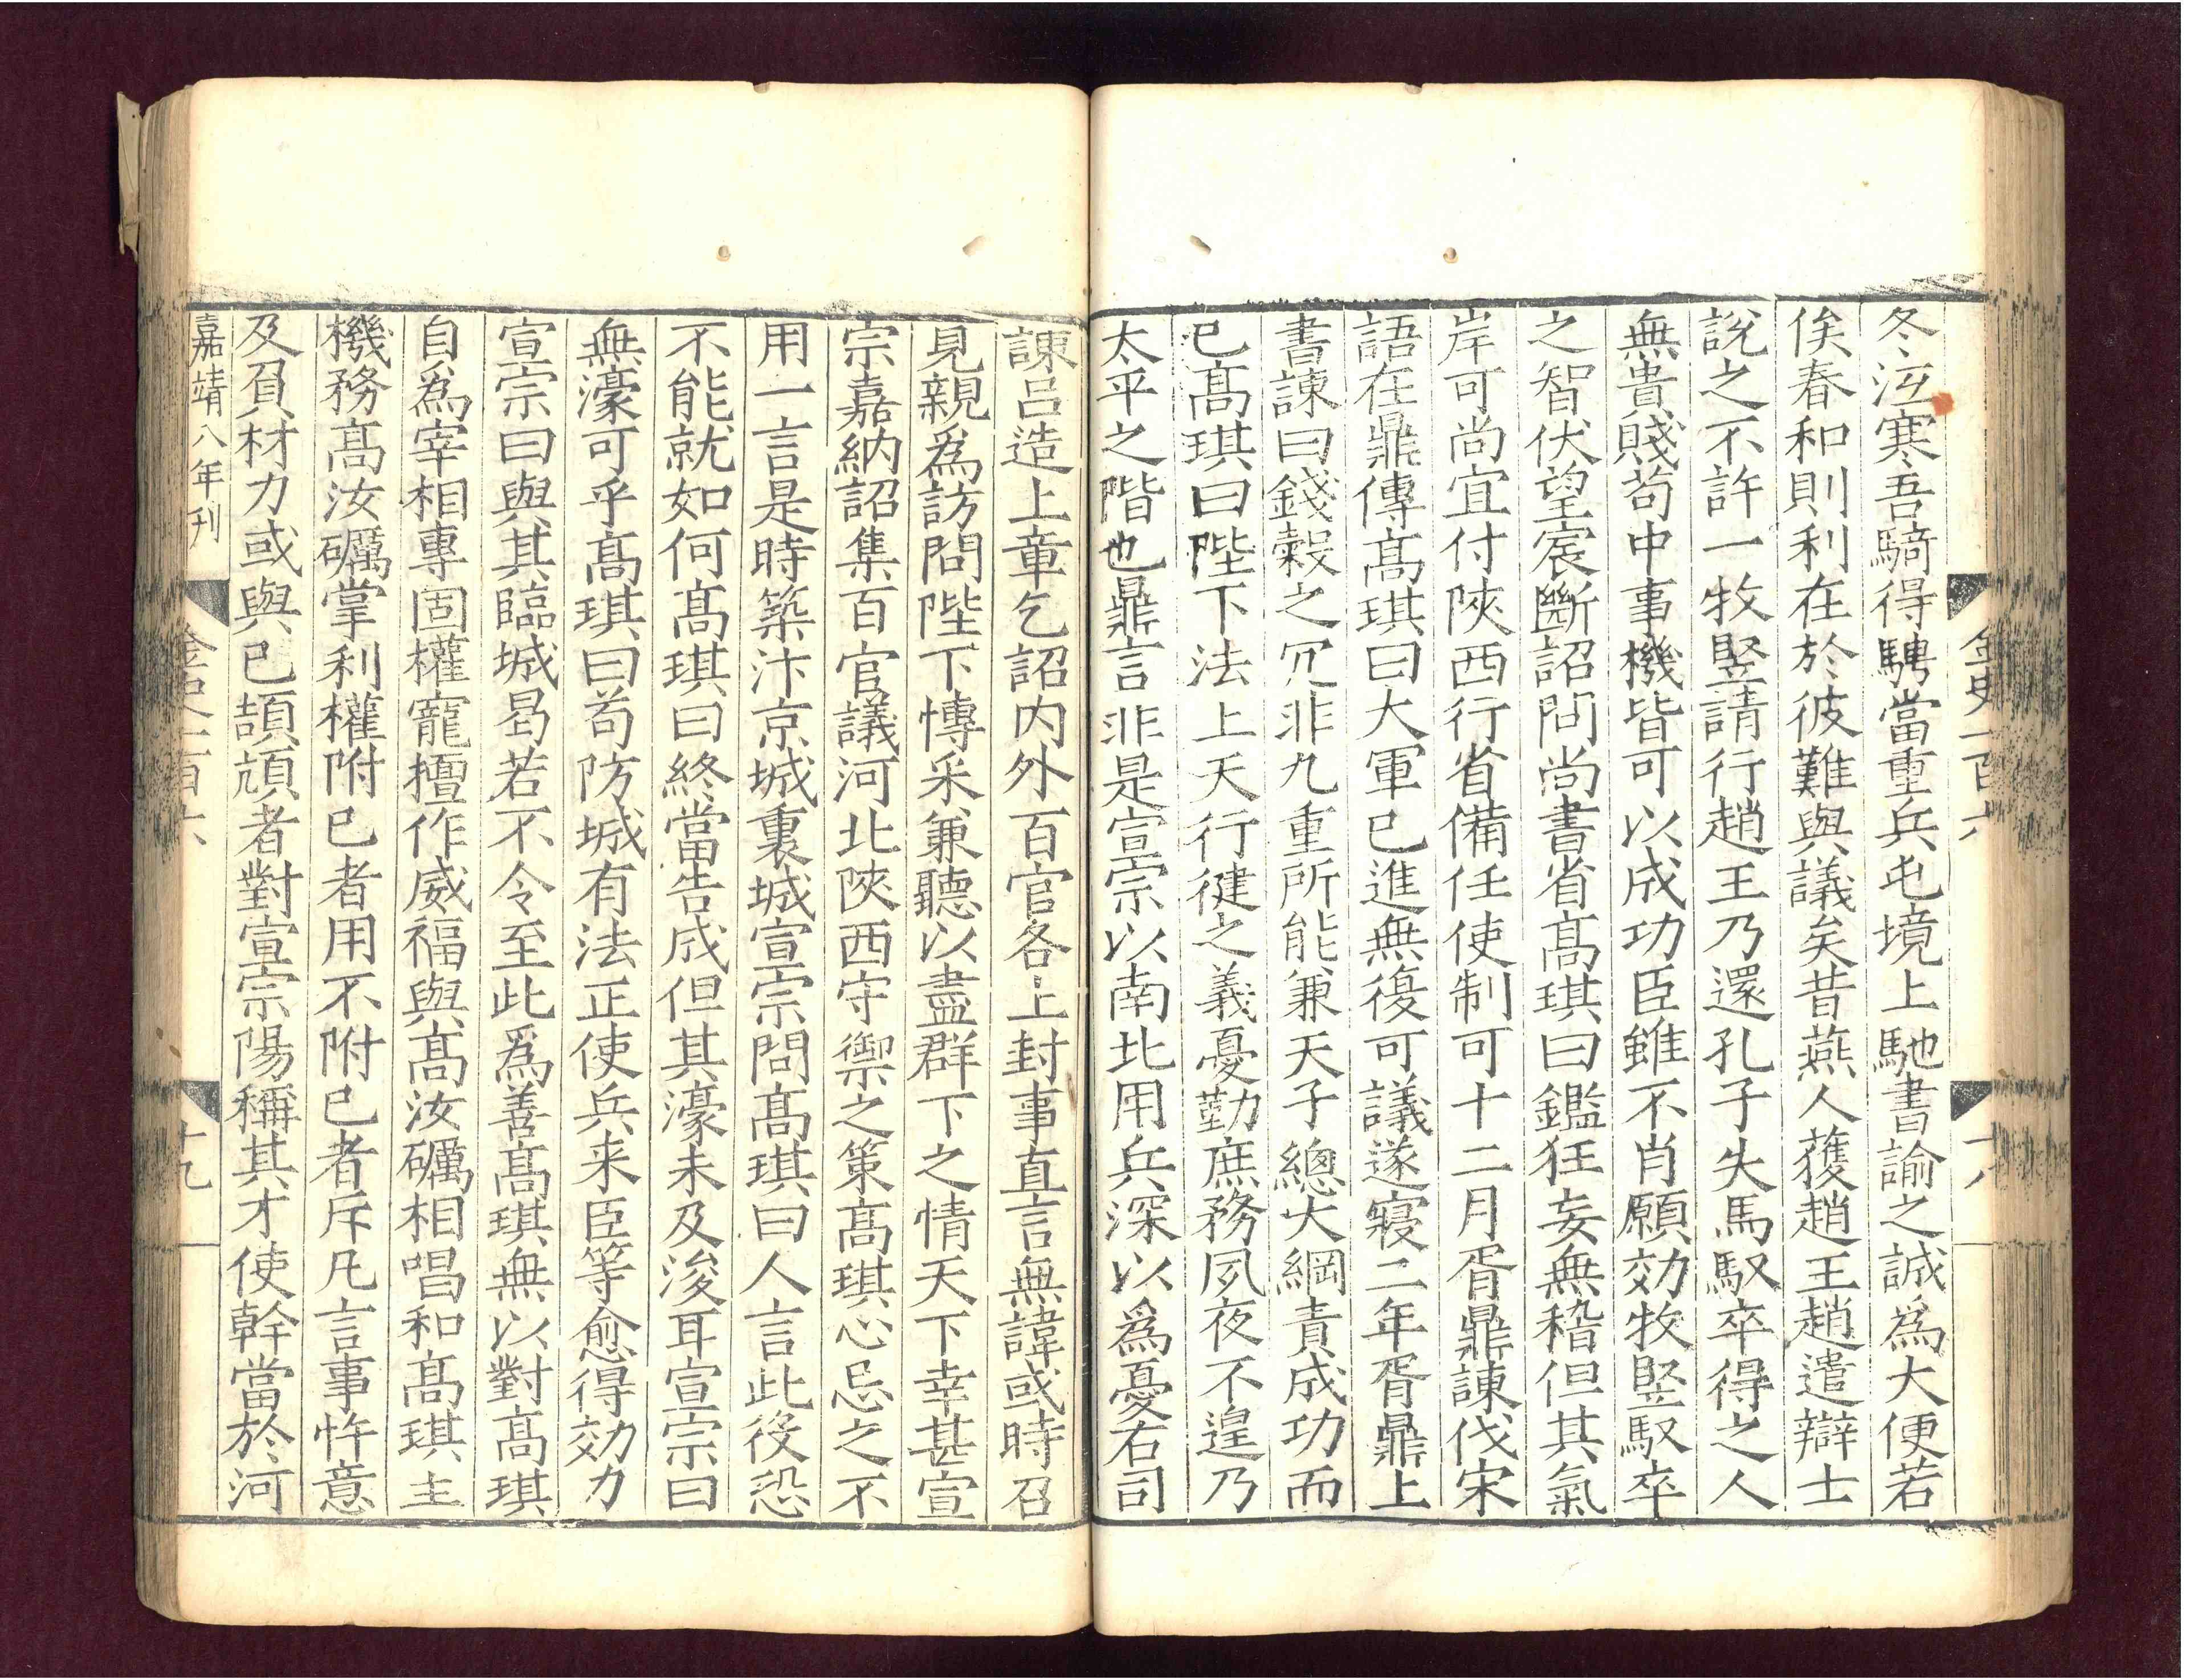 冬沍寒吾騎得騁當重兵屯境上馳書諭之誠爲大便若
俟春和則利在於彼難與議矣昔燕人獲趙王趙遣辯士
說之不許一牧豎請行趙王乃還孔子失馬馭卒得之人
無貴賤苟中事機皆可以成功臣雖不肖願効牧豎馭卒
之智伏望宸斷詔問尚書省高琪曰鑑狂妄無稽但其氣
岸可尚宜付陝西行省備任使制可十二月胥鼎諫伐宋
語在鼎傳高琪曰大軍已進無復可議遂寢二年胥鼎上
書諫曰錢穀之冗非九重所能兼天子總大綱責成功而
已高琪曰陛下法上天行健之義憂勤庶務夙夜不遑乃
太平之階也鼎言非是宣宗以南北用兵深以爲憂右司
諫呂造上章乞詔内外百官各上封事直言無諱或時召
見親爲訪問陛下博采兼聽以盡群下之情天下幸甚宣
宗嘉納詔集百官議河北陝西守禦之策高琪心忌之不
用一言是時築汴京城裏城宣宗問高琪曰人言此役恐
不能就如何高琪曰終當告成但其濠未及浚耳宣宗曰
無濠可乎高琪曰苟防城有法正使兵来臣等愈得効力
宣宗曰與其臨城曷若不令至此爲善高琪無以對高琪
自爲宰相專固權寵擅作威福與高汝礪相唱和高琪主
機務高汝礪掌利權附已者用不附已者斥凡言事忤意
及負材力或與已頡頏者對宣宗陽稱其才使幹當於河
嘉靖八年刊
金史一百六
十八
金史一百六
十九